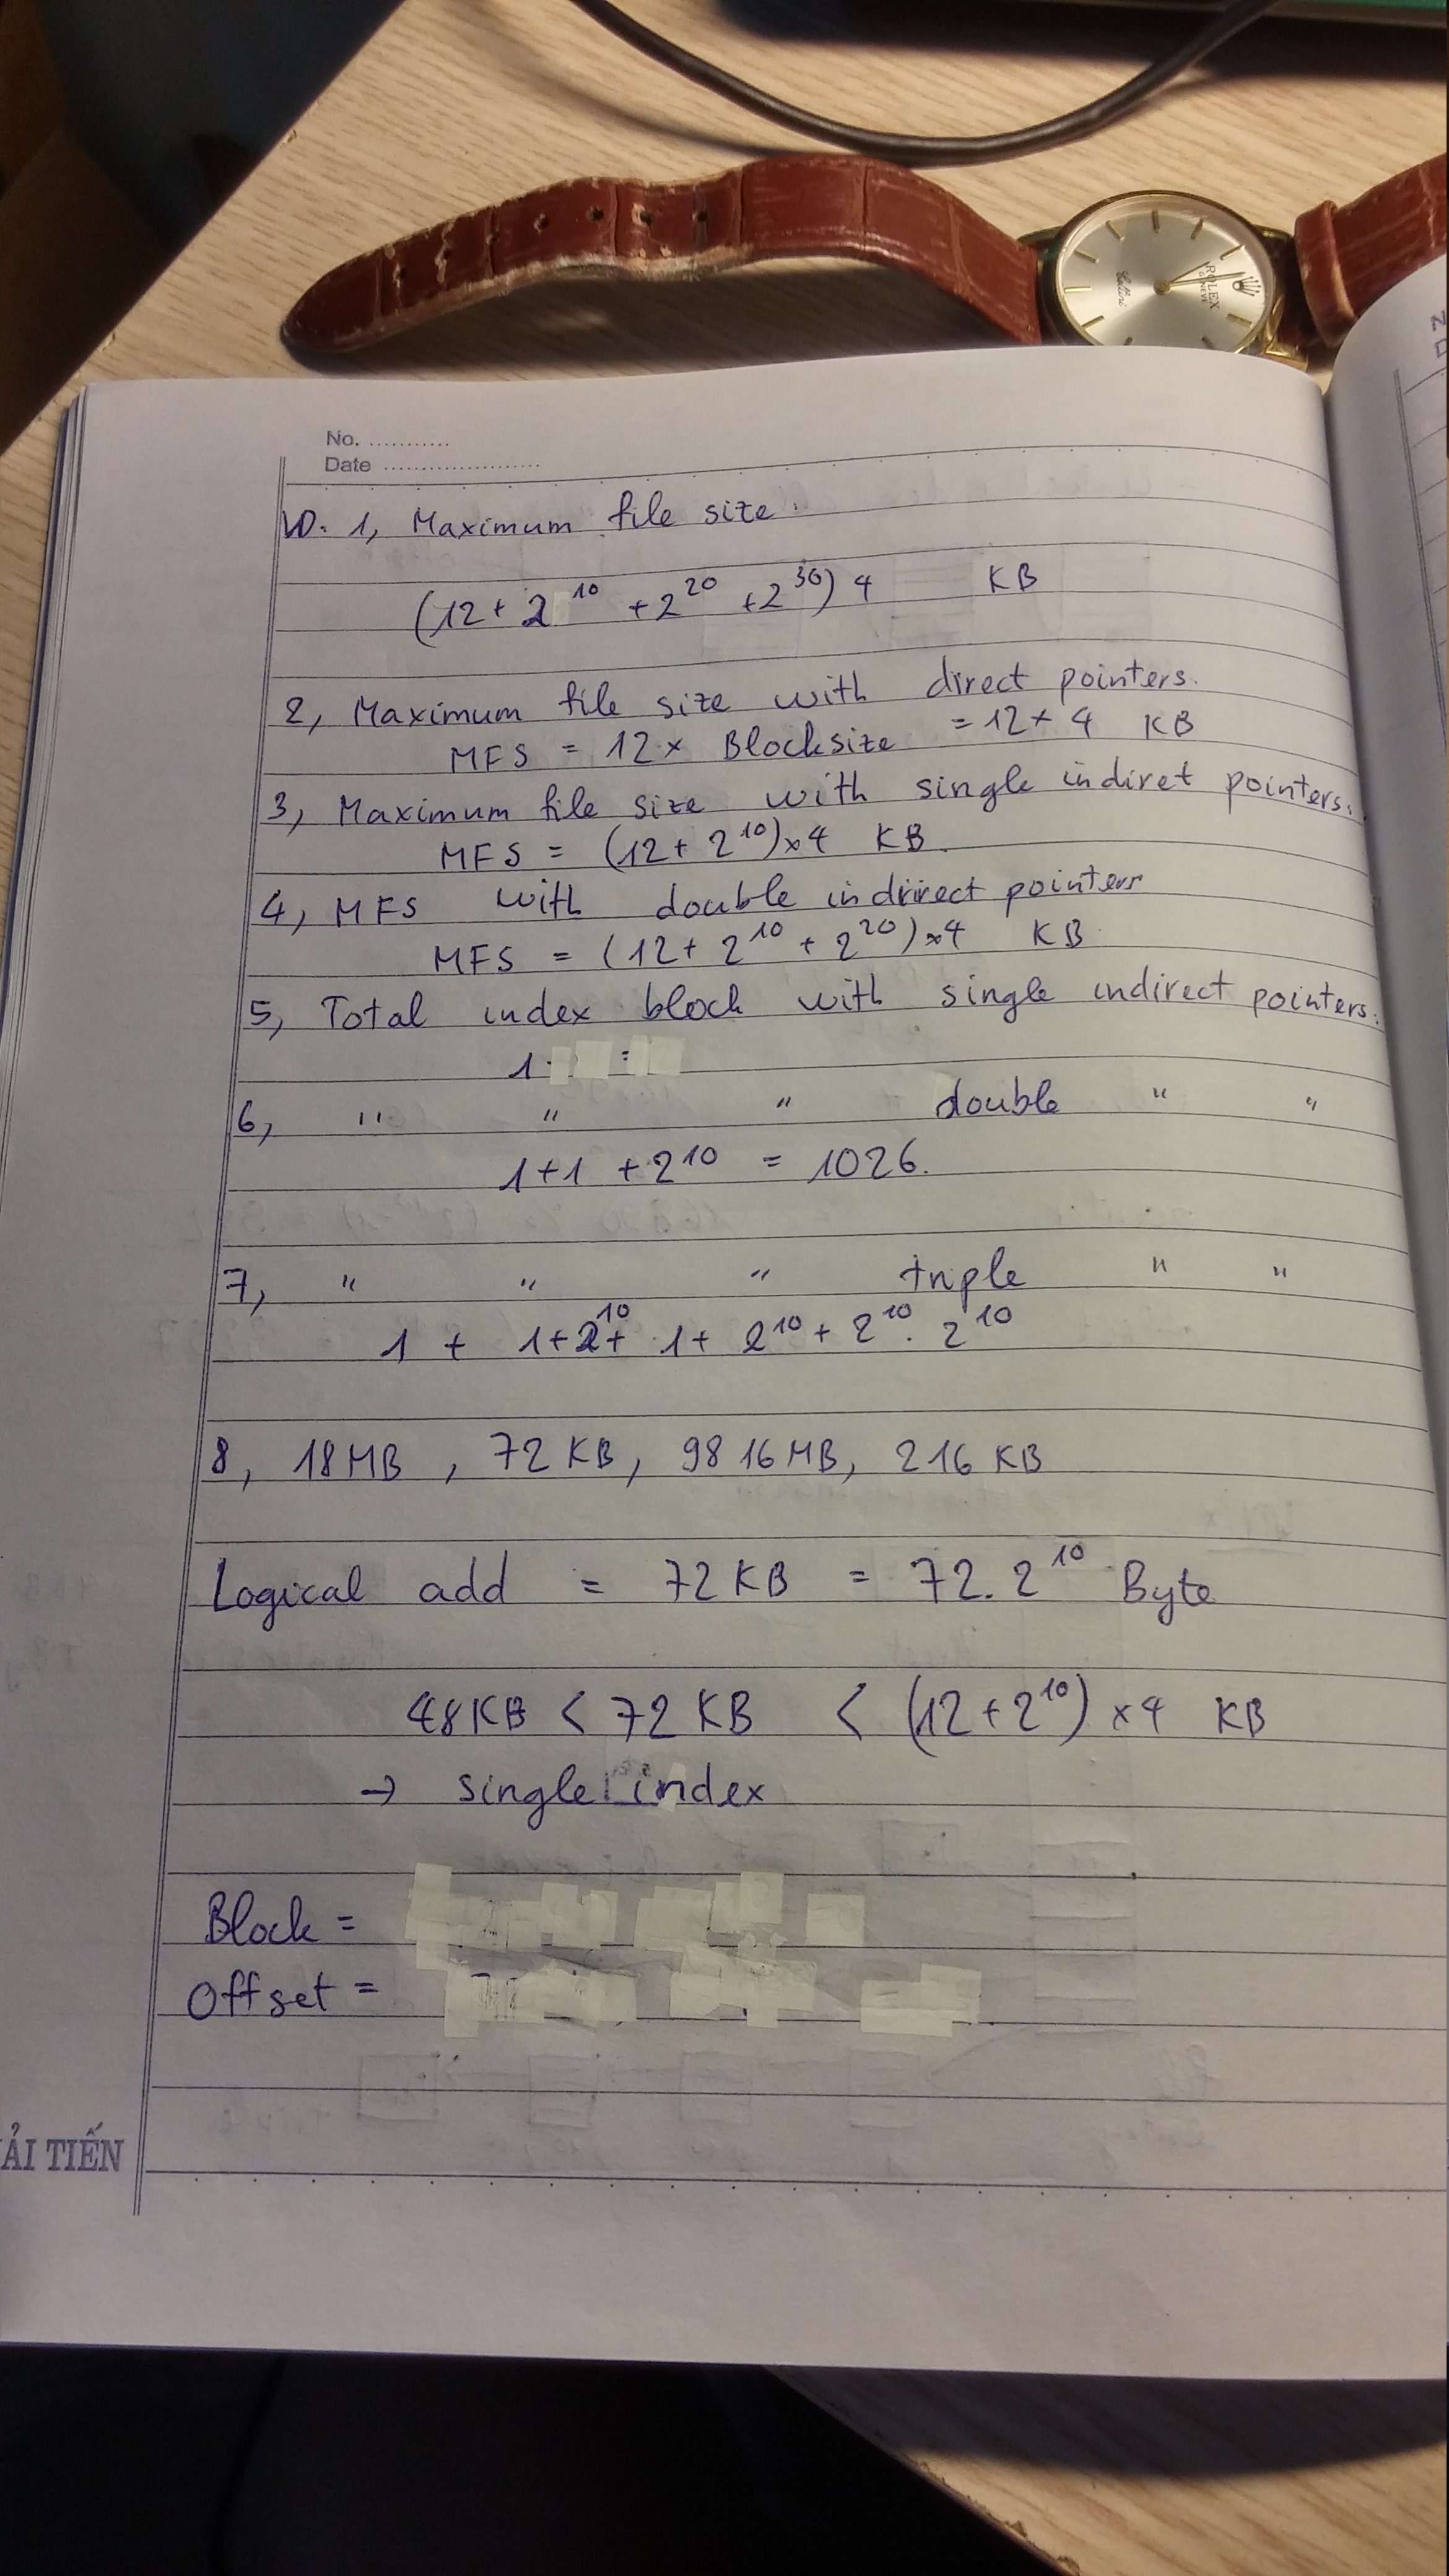 ROLEX
GENEVE
Cellini
No. ...........
Date ......................
10. 1, Maximum file size.
(12 + 2^10 + 2^20 + 2^30) 4 KB
2, Maximum file size with direct pointers.
MFS = 12 x Blocksize = 12 x 4 KB
3, Maximum file size with single indiret pointers.
MFS = (12 + 2^10) x 4 KB.
4, MFS with double indirect pointers
MFS = (12 + 2^10 + 2^20) x 4 KB
5, Total index block with single indirect pointers.
1
6, " " " double " "
1 + 1 + 2^10 = 1026.
7, " " " triple " "
1 + 1 + 2^10 + 1 + 2^10 + 2^10 . 2^10
8, 18 MB, 72 KB, 9816 MB, 216 KB
Logical add = 72 KB = 72. 2^10 Byte
48 KB < 72 KB < (12 + 2^10) x 4 KB
→ single index
Block =
Offset =
ẢI TIẾN